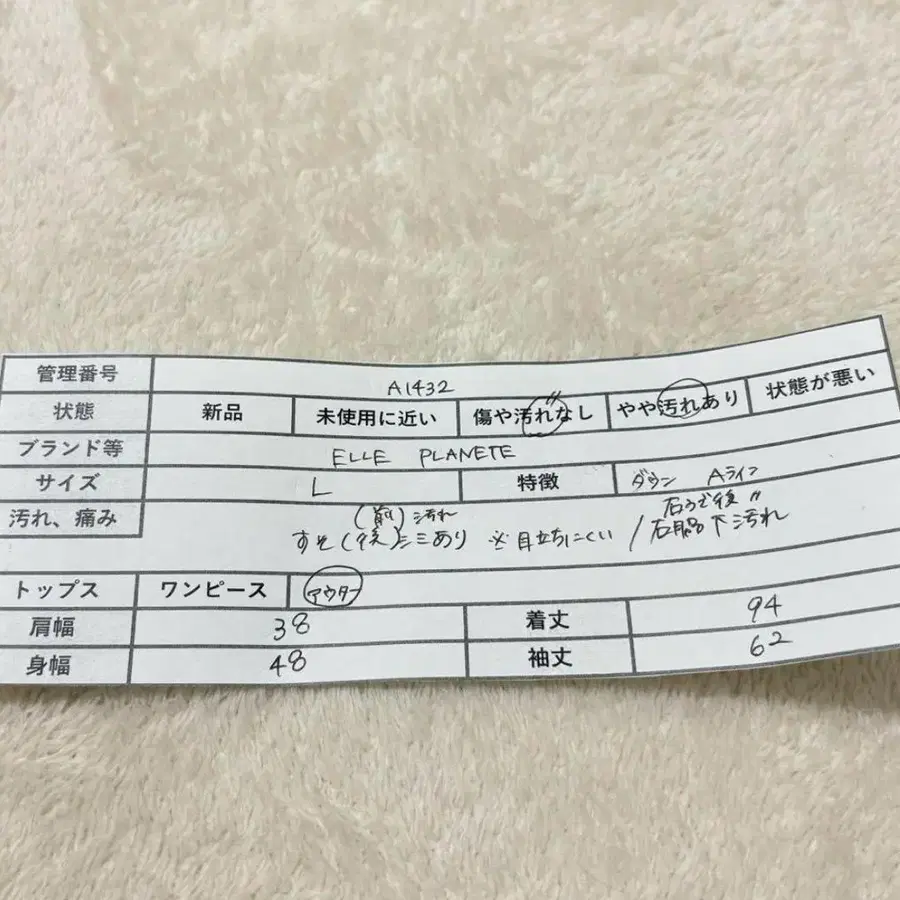 管理番号 A1432
状態 新品 未使用に近い 傷や汚れなし やや汚れあり 状態が悪い
ブランド等 ELLE PLANETE
サイズ L 特徴 ダウン Aライン
汚れ、痛み
(前)汚れ
すそ(後)シミあり ※目立ちにくい /
右うで後 〃
右脇下汚れ
トップス ワンピース アウター
肩幅 38 着丈 94
身幅 48 袖丈 62